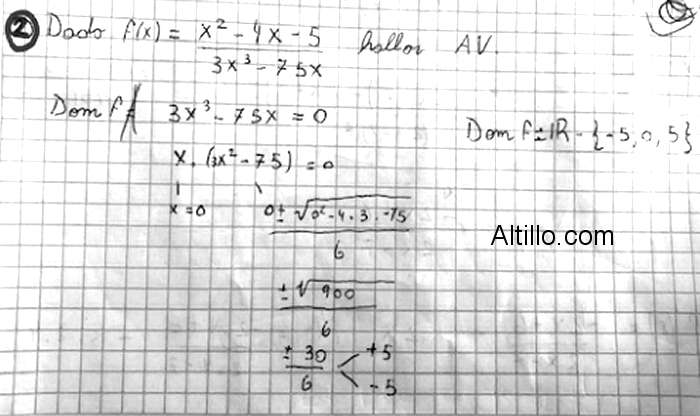 ② Dado f(x) = x² - 4x - 5 / 3x³ - 75x hallar AV.
Dom f 3x³ - 75x = 0
Dom f = IR - {-5, 0, 5}
x . (3x² - 75) = 0
x = 0 0 ± √0² - 4 . 3 . -75 / 6
Altillo.com
± √900 / 6
± 30 / 6 + 5
- 5